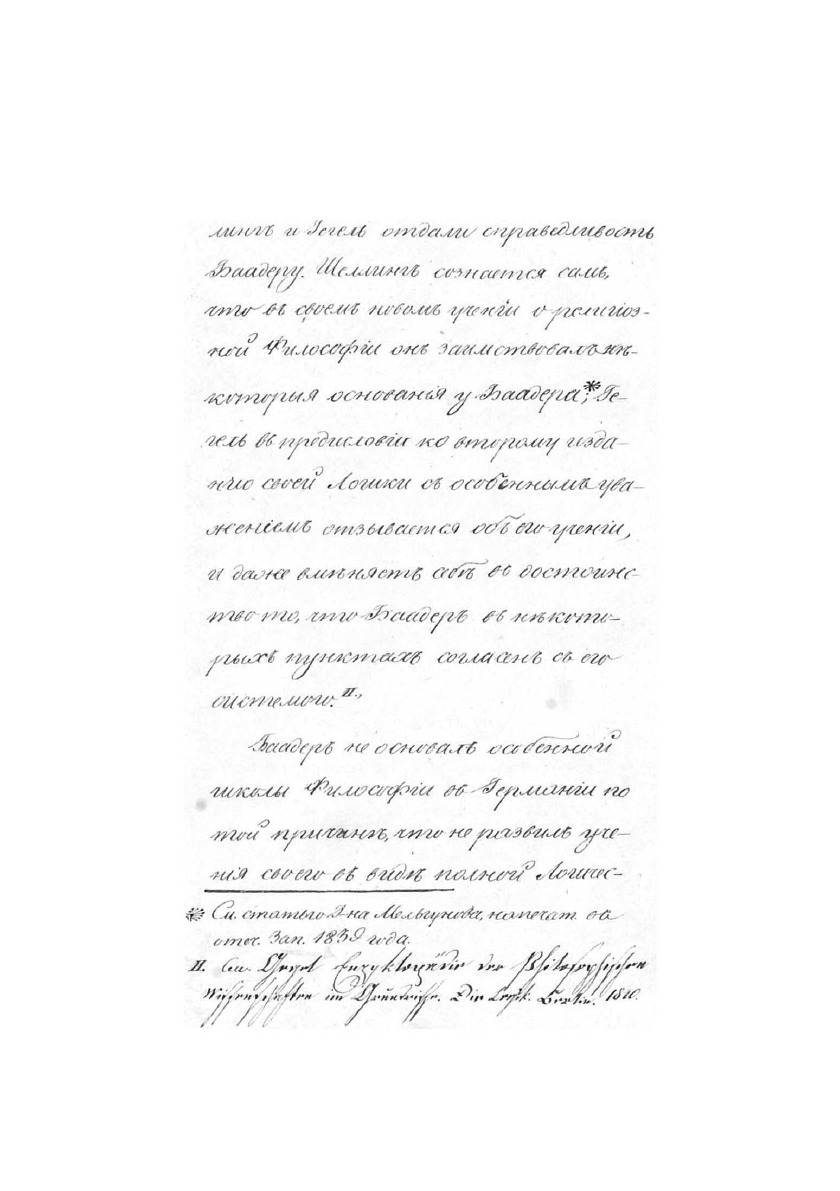 лингъ и Гегель отдали справедливость
Баадеру. Шеллингъ сознается самъ,
что въ своемъ новомъ ученіи о религіоз-
ной Философіи онъ заимствовалъ нѣ-
которыя основанія у Баадера,* Ге-
гель въ предисловіи ко второму изда-
нію своей Логики съ особеннымъ ува-
женіемъ отзывается объ его ученіи,
и даже вмѣняетъ себѣ въ достоинс-
тво то, что Баадеръ въ нѣкото-
рыхъ пунктахъ согласенъ съ его
системою. II.,
Баадеръ не основалъ особенной
школы Философіи въ Германіи по
той причинѣ, что не развилъ уче-
нія своего въ видѣ полной Логичес-
* См. статью Г-на Мельгунова, напечат. въ
отеч. Зап. 1839 года.
II. См. Hegel Enzyklopädie der Philosophischen
Wissenschaften im Grundrisse. Die Logik. Berlin. 1840.